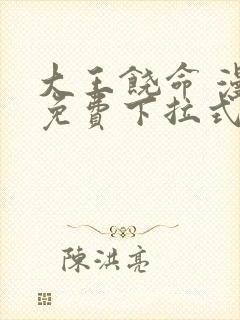 大王饶命 漫
免費下拉式
陳洪亮